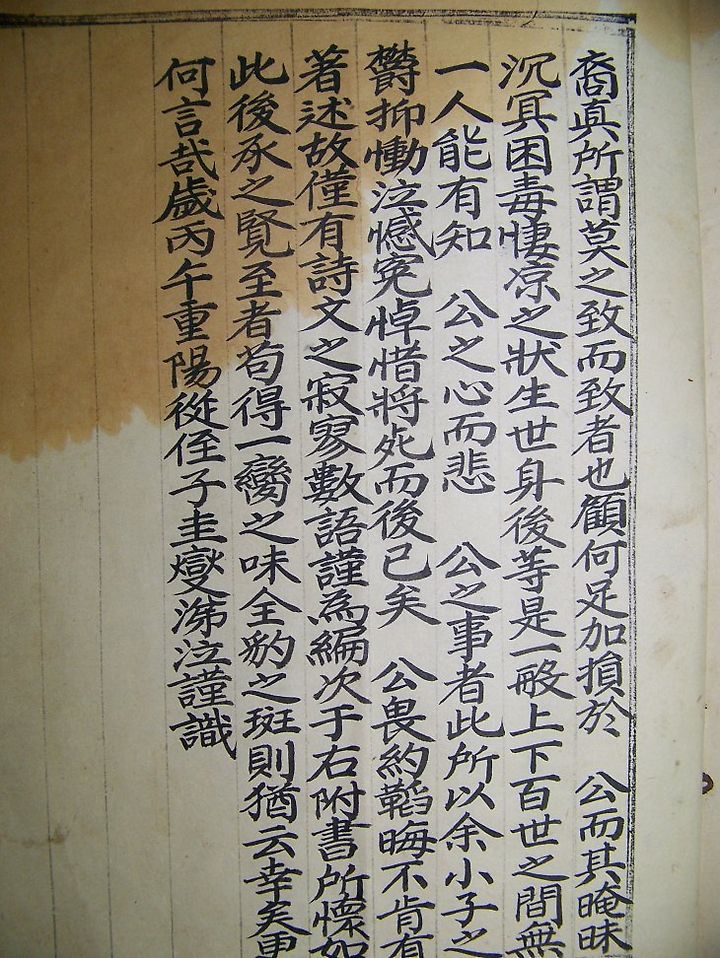 裔真所謂莫之致而致者也顧何足加損於 公而其晻昧
沉冥困毒悽凉之狀生世身後等是一般上下百世之間無
一人能有知 公之心而悲 公之事者此所以余小子之
欝抑慟泣憾寃悼惜將死而後已矣 公畏約韜晦不肯有
著述故僅有詩文之寂寥數語謹為編次于右附書所懷如
此後承之賢至者苟得一臠之味全豹之斑則猶云幸矣更
何言哉歲丙午重陽從侄子圭燮涕泣謹識